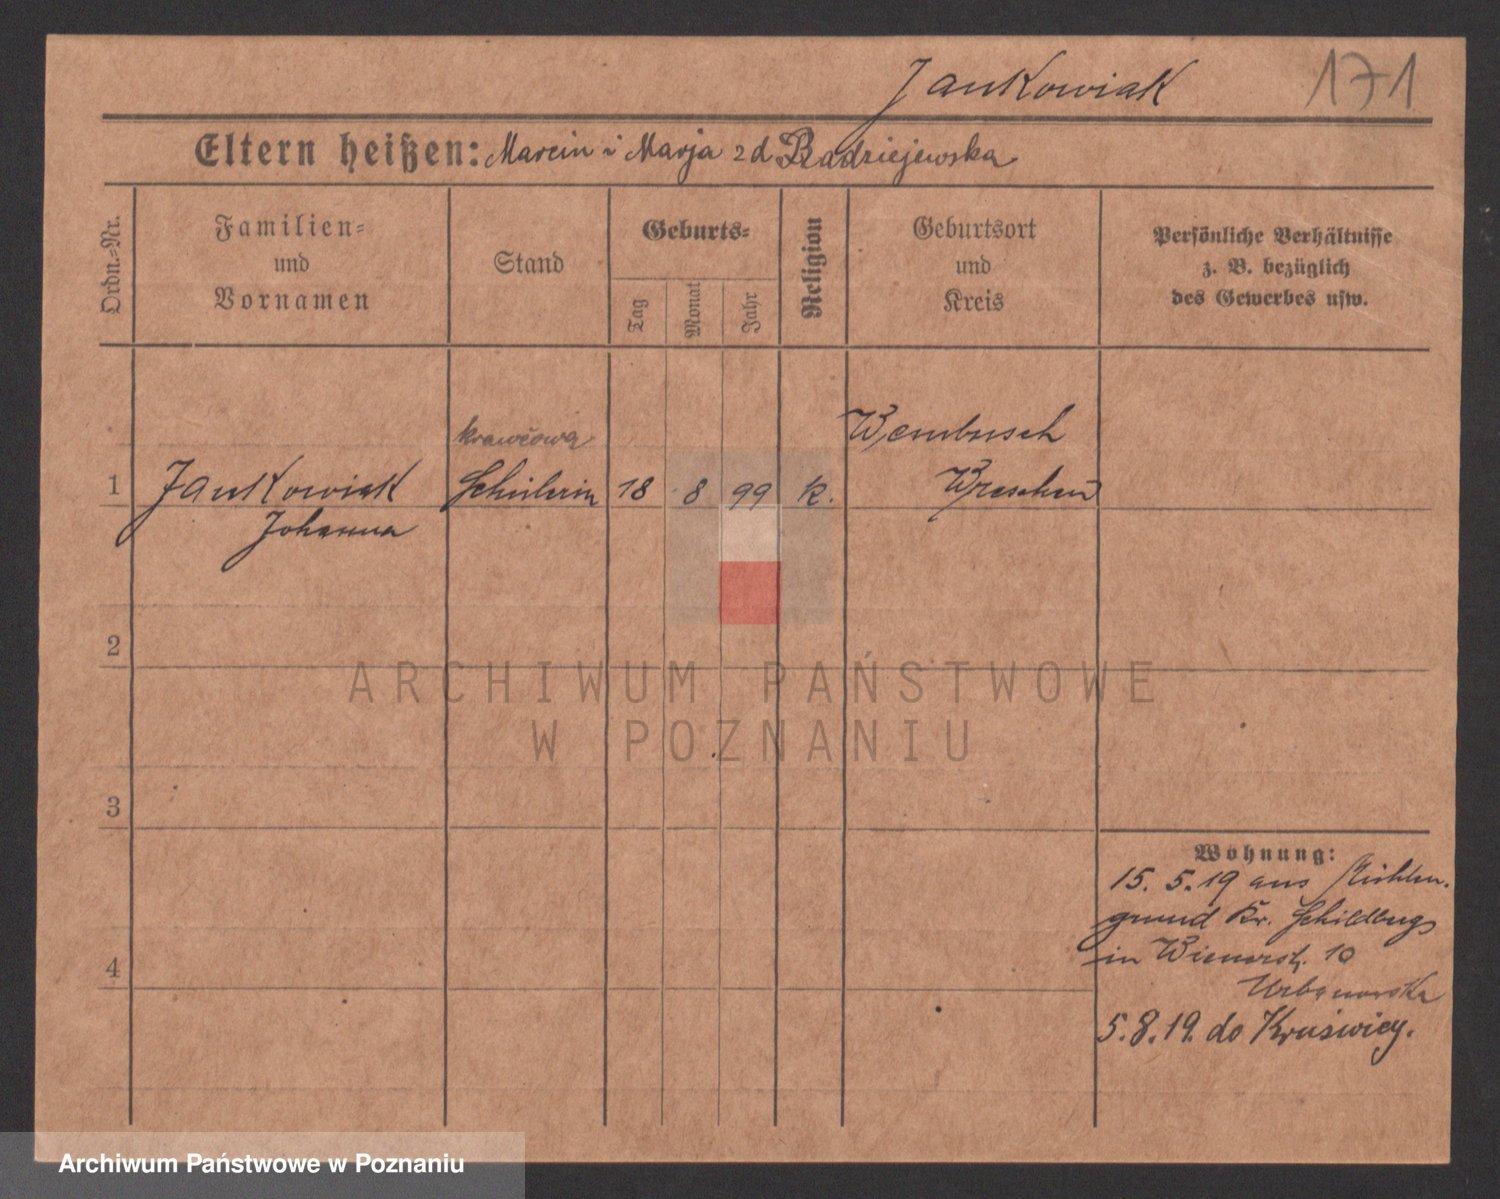 Jankowiak 171
Eltern heißen: Marcin i Marja z d Radziejewska
Ordn.-Nr.
Familien-
und
Vornamen
Stand
Geburts-
Tag
Monat
Jahr
Religion
Geburtsort
und
Kreis
Persönliche Verhältnisse
z. B. bezüglich
des Gewerbes usw.
krawcowa
Wembusch
1 Jankowiak Schülerin 18 8 99 k. Wreschen
Johanna
2
ARCHIWUM PAŃSTWOWE
W POZNANIU
3
Wohnung:
15. 5. 19 aus
grund Kr. Schildberg
4
in Wienerstr. 10
Urbanowska
5. 8. 19. do Kruświcy.
Archiwum Państwowe w Poznaniu